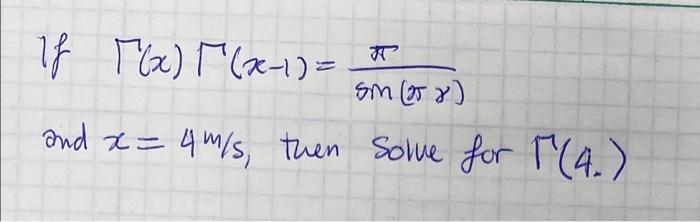 If Γ(x) Γ(x-1) = π / sin(πx)
and x = 4 m/s, then solve for Γ(4.)